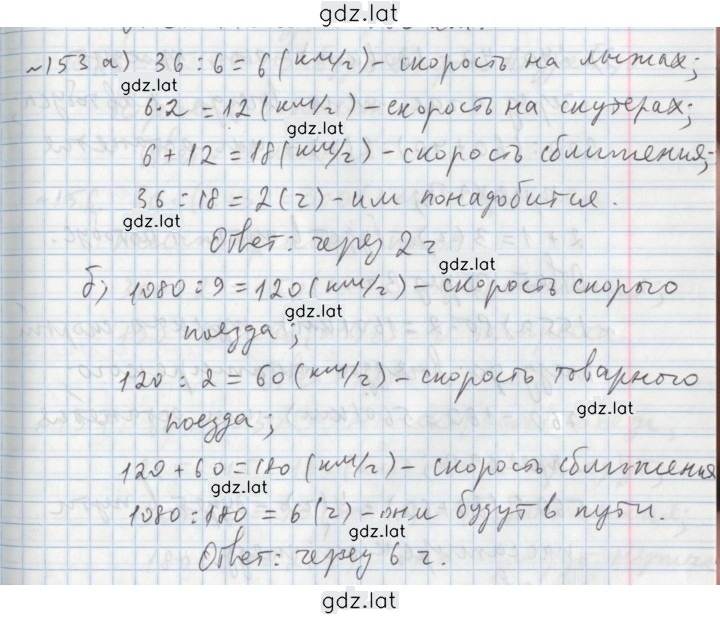 gdz.lat
№153 а) 36 : 6 = 6 (км/ч) – скорость на лыжах;
gdz.lat
6·2 = 12 (км/ч) – скорость на скутерах;
gdz.lat
6 + 12 = 18 (км/ч) – скорость сближения;
36 : 18 = 2 (ч) – им понадобится.
gdz.lat
Ответ: через 2 ч
gdz.lat
б) 1080 : 9 = 120 (км/ч) – скорость скорого
gdz.lat
поезда;
120 : 2 = 60 (км/ч) – скорость товарного
gdz.lat
поезда;
120 + 60 = 180 (км/ч) – скорость сближения
gdz.lat
1080 : 180 = 6 (ч) – они будут в пути.
gdz.lat
Ответ: через 6 ч.
gdz.lat